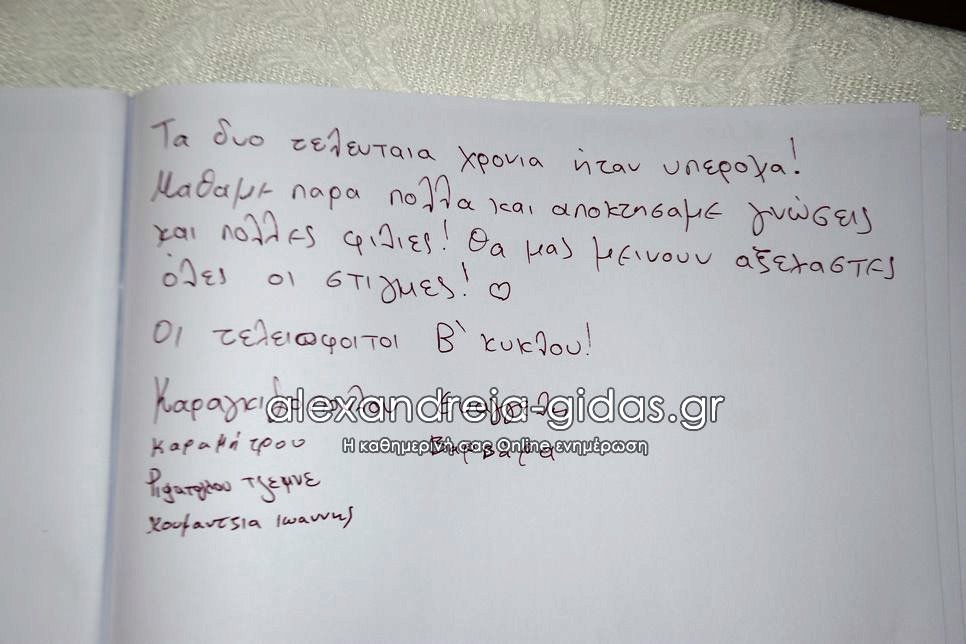 Τα δυο τελευταια χρονια ήταν υπεροχα!
Μαθαμε παρα πολλα και αποκτησαμε γνώσεις
και πολλες φιλιες! Θα μας μεινουν αξεχαστες
όλες οι στιγμες! ♡
Οι τελειοφοιτοι Β` κυκλου!
alexandreia-gidas.gr
Καραμήτρου Βαρβαρα
Η καθημερινή σας Online ενημέρωση
Τζεμνε
Χουμαντσια Ιωαννης